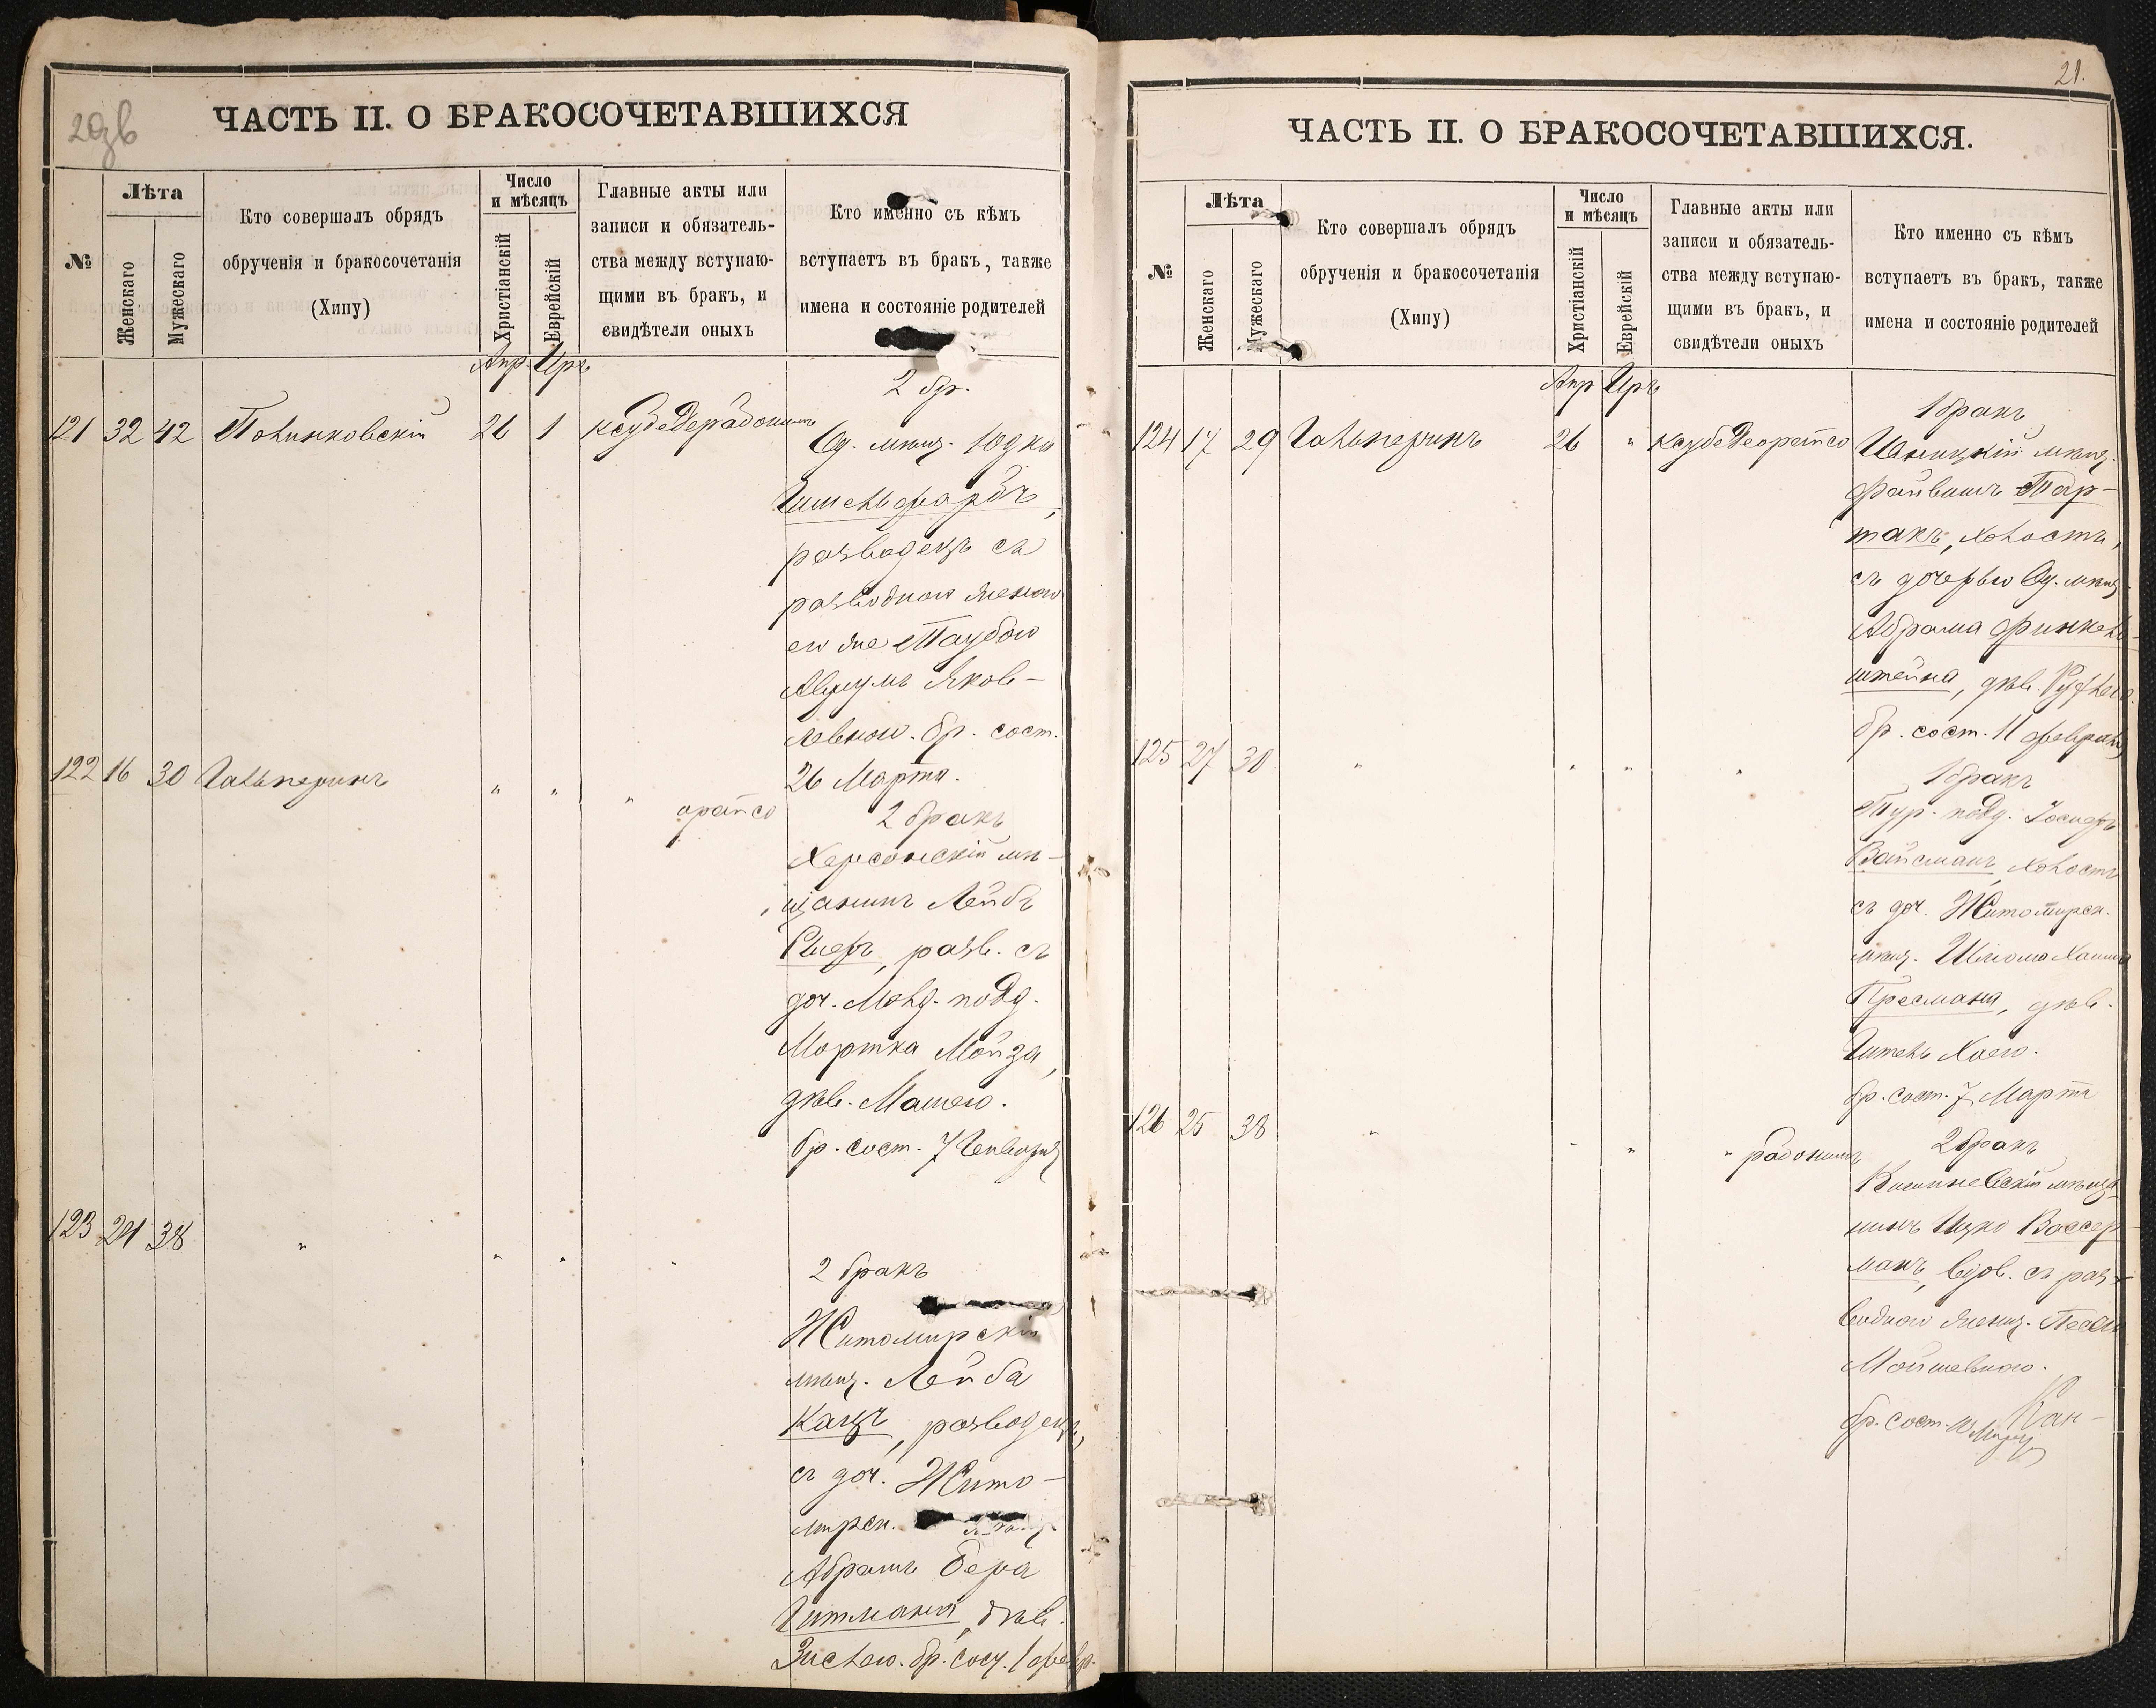 20зв
ЧАСТЬ II. О БРАКОСОЧЕТАВШИХСЯ
№
Лѣта
Женскаго
Мужескаго
Кто совершалъ обрядъ
обрученія и бракосочетанія
(Хипу)
Число
и мѣсяцъ
Христіанскій
Еврейскій
Главные акты или
записи и обязатель-
ства между вступаю-
щими въ бракъ, и
свидѣтели оныхъ
Кто именно съ кѣмъ
вступаетъ въ бракъ, также
имена и состояніе родителей
Апр. Иръ
2 бр.
121 32 42 Полинковскій 26 1
Од. мѣщ. Юдка
Гишельфарбъ,
разведецъ съ
разводною женою
ею же Таубою
Аврумъ Яков-
левною. бр. сост.
26 Марта.
122 16 30 Гальперинъ " " "
2 бракъ
Херсонскій мѣ-
щанинъ Лейбъ
разв. съ
доч. Молд. подд.
Мортка Мойза,
дѣв. Машею.
бр. сост. 7 Генваря
123 24 38 " " " "
2 бракъ
Житомирскій
мѣщ. Лейба
Кацъ, разведецъ,
съ доч. Жито-
мирск.
Абрамъ Бера
Гитмана, дѣв.
Зислею. бр. сост. 1 февр.
21.
ЧАСТЬ II. О БРАКОСОЧЕТАВШИХСЯ.
№
Лѣта
Женскаго
Мужескаго
Кто совершалъ обрядъ
обрученія и бракосочетанія
(Хипу)
Число
и мѣсяцъ
Христіанскій
Еврейскій
Главные акты или
записи и обязатель-
ства между вступаю-
щими въ бракъ, и
свидѣтели оныхъ
Кто именно съ кѣмъ
вступаетъ въ бракъ, также
имена и состояніе родителей
Апр Иръ
1 бракъ
124 17 29 Гальперинъ 26 "
мѣщ.
Файвишъ Тар-
такъ, холостъ,
съ дочерью Од. мѣщ.
Абрама Финкель-
штейна, дѣв.
бр. сост. 11 февраля
125 27 30 " " " "
1 бракъ
Тур. подд. Іосифъ
Вайсманъ, холостъ
съ доч. Житомирск.
мѣщ. Шлома Хаима
Пресмана, дѣв.
Гитель Хаею.
бр. сост. 7 Марта
126 25 38 " " " "
2 бракъ
Кишиневскій мѣща-
нинъ Ицко Вассер-
манъ, вдов. съ раз-
водною женщ.
Мойшевною.
бр. сост.